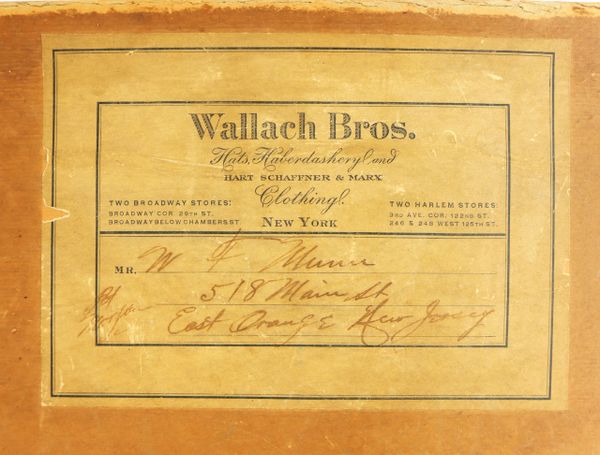 Wallach Bros.
Hats, Haberdashery and
HART SCHAFFNER & MARX
Clothing.
NEW YORK
TWO BROADWAY STORES:
BROADWAY COR. 29TH ST.
BROADWAY BELOW CHAMBERS ST.
TWO HARLEM STORES:
3RD AVE. COR. 122ND ST.
246 & 248 WEST 125TH ST.
MR. W F Munn
518 Main St
East Orange New Jersey